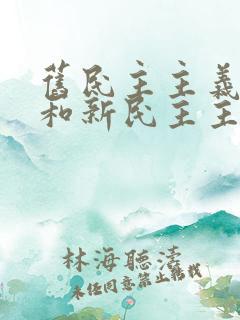 舊民主主義
和新民主主
林海聽濤
未經同意禁止轉載